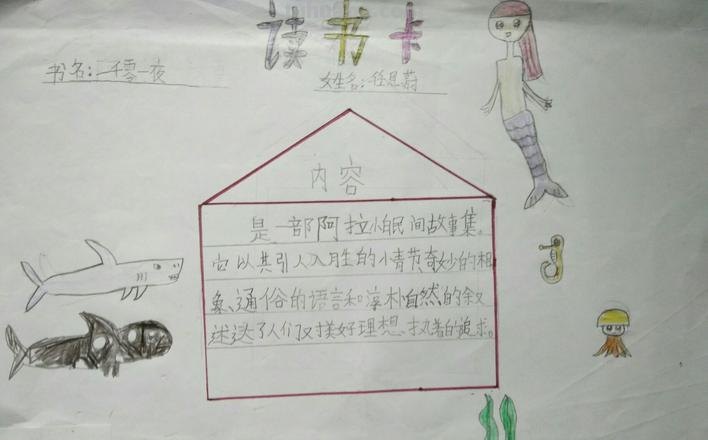 读书卡
书名:一千零一夜
姓名:任思蔚
内容
是一部阿拉伯民间故事集。
它以其引人入胜的小情节奇妙的想
象、通俗的语言和淳朴自然的叙
述达了人们对美好理想、执著的追求。